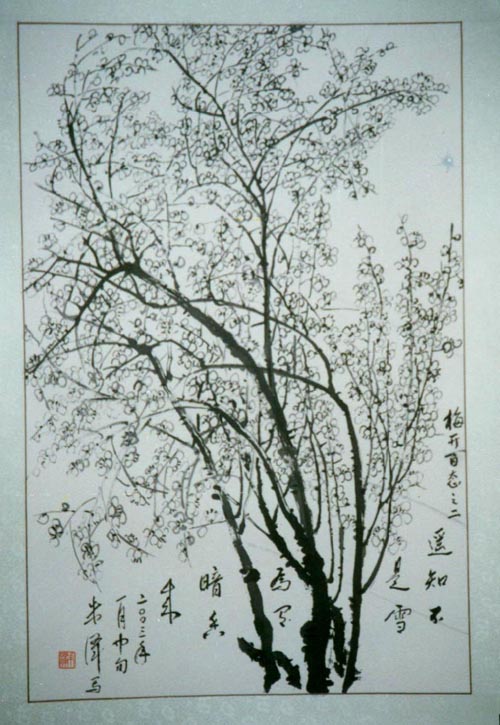 梅开百态之二
遥知不
是雪
为有
暗香
来
二〇〇三年
一月中旬
写